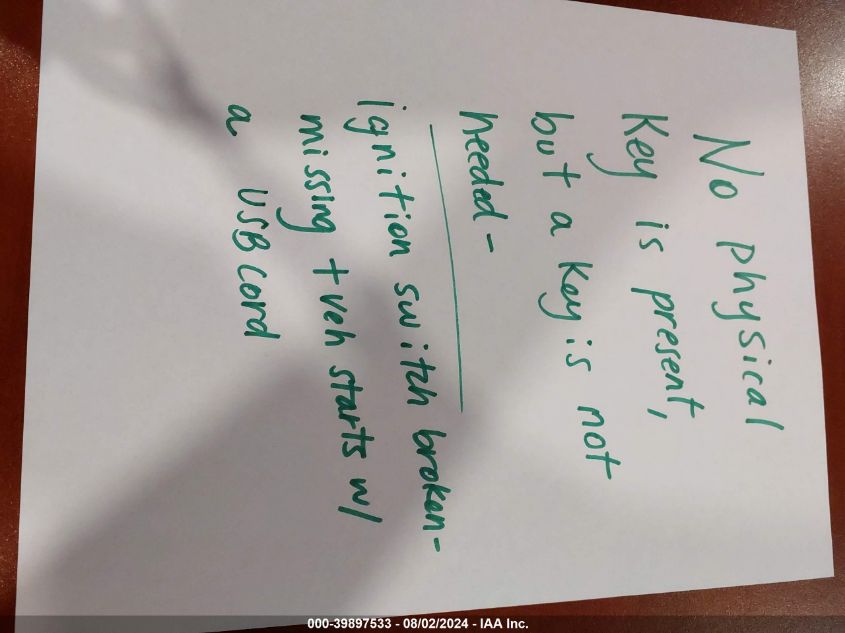 No physical
Key is present,
but a key is not
needed -
ignition switch broken-
missing + veh starts w/
a USB cord
000-39897533 - 08/02/2024 - IAA Inc.